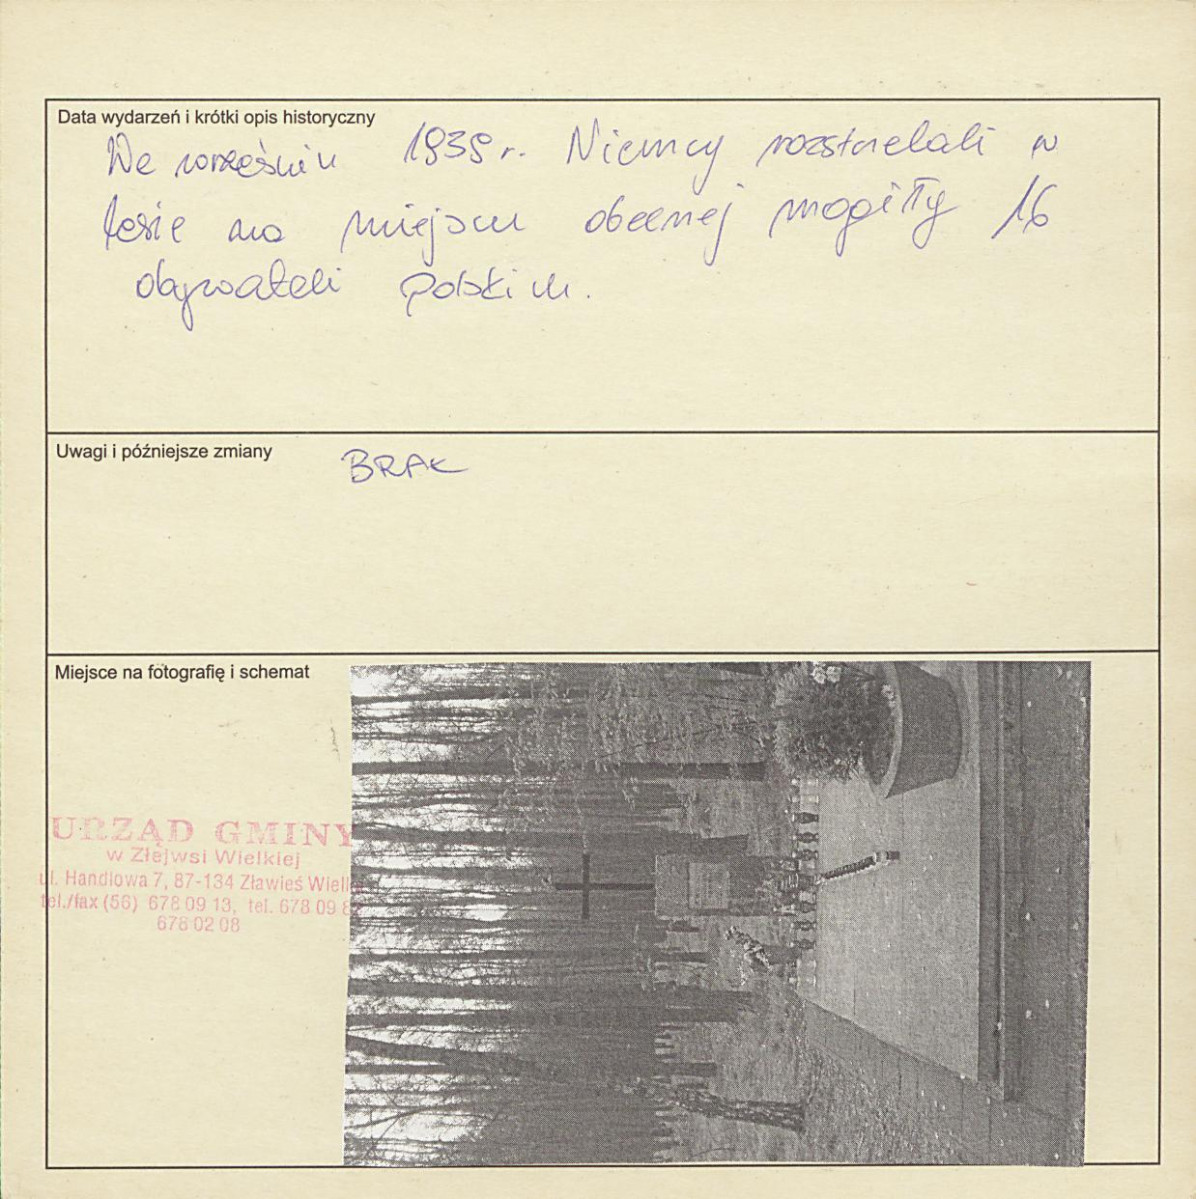 Data wydarzeń i krótki opis historyczny
We wrześniu 1939 r. Niemcy rozstrzelali w
lesie na miejscu obecnej mogiły 16
obywateli polskich.
Uwagi i późniejsze zmiany
BRAK
Miejsce na fotografię i schemat
URZĄD GMINY
w Złejwsi Wielkiej
ul. Handlowa 7, 87-134 Zławieś Wielka
tel./fax (56) 678 09 13, tel. 678 09 82
678 02 08